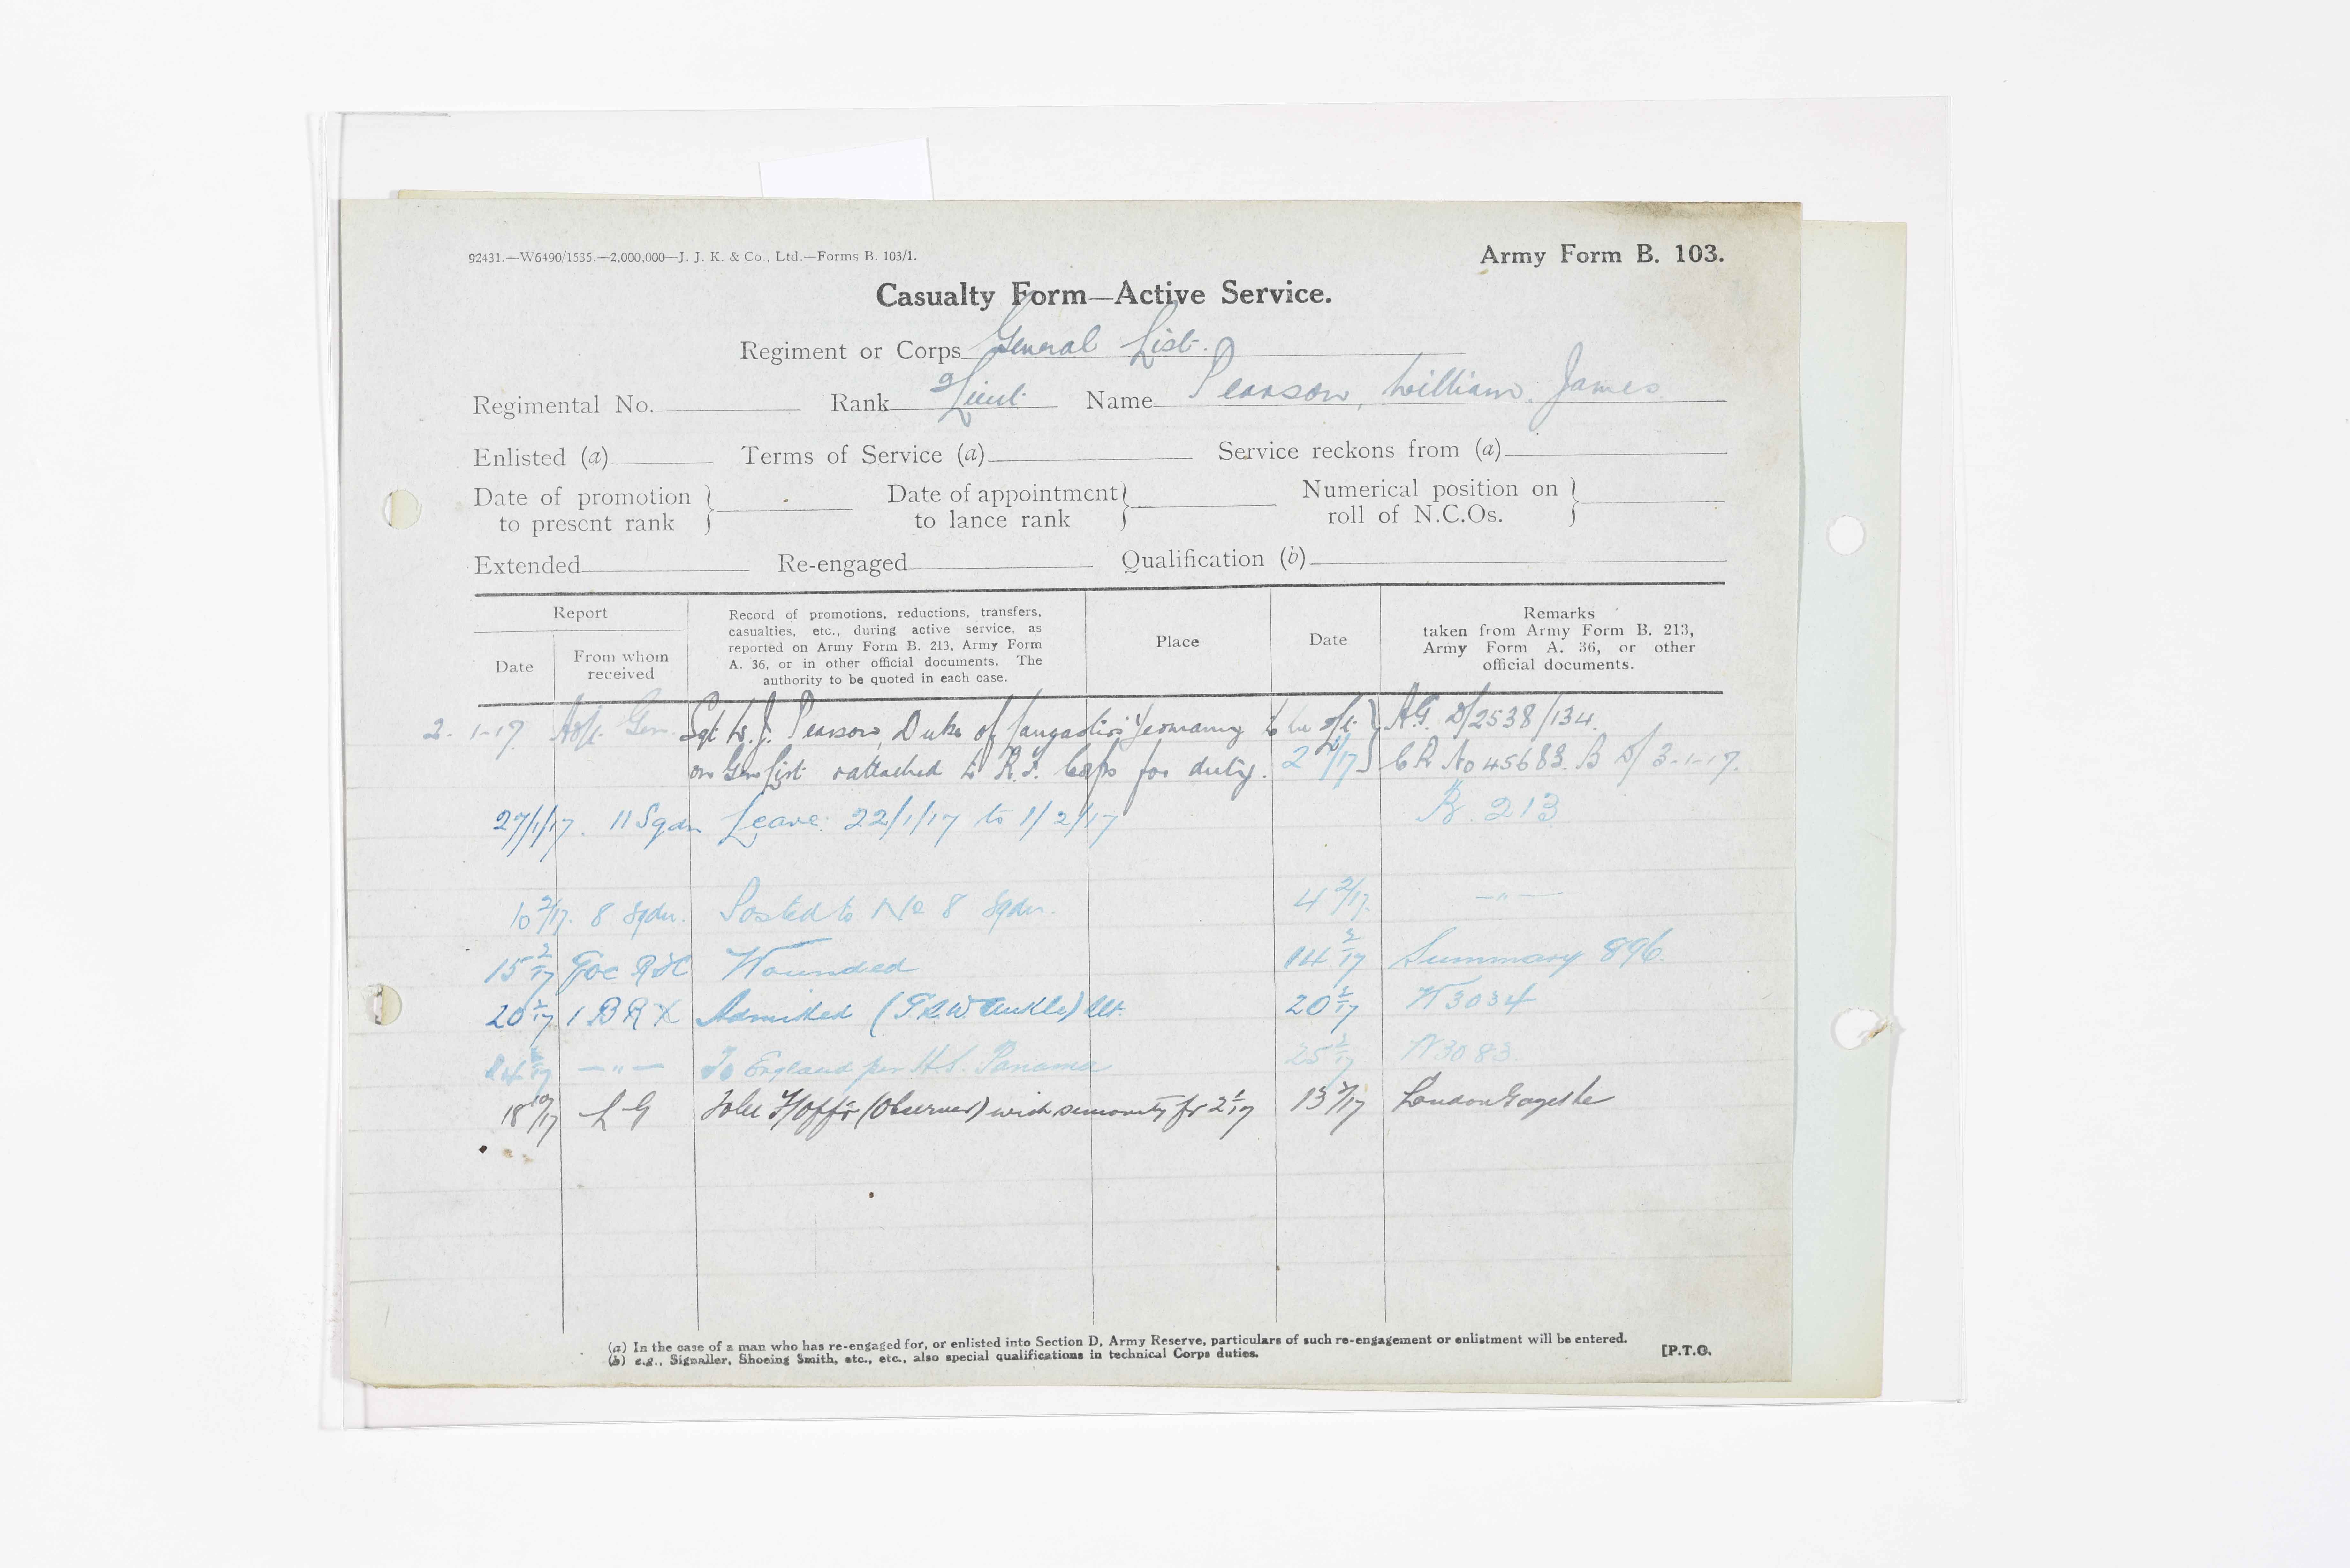 92431.—W6490/1535.—2,000,000—J. J. K. & Co., Ltd.—Forms B. 103/1.
Army Form B. 103.
Casualty Form—Active Service.
Regiment or Corps General List.
Regimental No. Rank 2/Lieut. Name Pearson, William James
Enlisted (a) Terms of Service (a) Service reckons from (a)
Date of promotion to present rank } Date of appointment to lance rank } Numerical position on roll of N.C.Os. }
Extended Re-engaged Qualification (b)
Report
Date
From whom received
Record of promotions, reductions, transfers,
casualties, etc., during active service, as
reported on Army Form B. 213, Army Form
A. 36, or in other official documents. The
authority to be quoted in each case.
Place
Date
Remarks
taken from Army Form B. 213,
Army Form A. 36, or other
official documents.
2-1-17. Sgt W. J. Pearson, Duke of Yeomanry to be } A.G. D/2538/134.
on Gen List & attached to R.F. Corps for duty. 2 1/17 } C R No 45683. B D/ 3-1-17.
27/1/17. 11 Sqdn Leave: 22/1/17 to 1/2/17 B. 213
10 2/17. 8 Sqdn. Posted to No 8 Sqdn. 4 2/17. —"—
15 2/17 GOC RFC Wounded 14 2/17 Summary 896.
20 2/17 1 B R X Admitted (G.S.W. Ankle) 20 2/17 W 3034
24 2/17 —"— To England per H.S. Panama 25 2/17 W3083
18 /17 L G To be F/Offr (Observer) with seniority fr 2 1/17 13 /17 London Gazette
(a) In the case of a man who has re-engaged for, or enlisted into Section D, Army Reserve, particulars of such re-engagement or enlistment will be entered.
(b) e.g., Signaller, Shoeing Smith, etc., etc., also special qualifications in technical Corps duties.
[P.T.O.